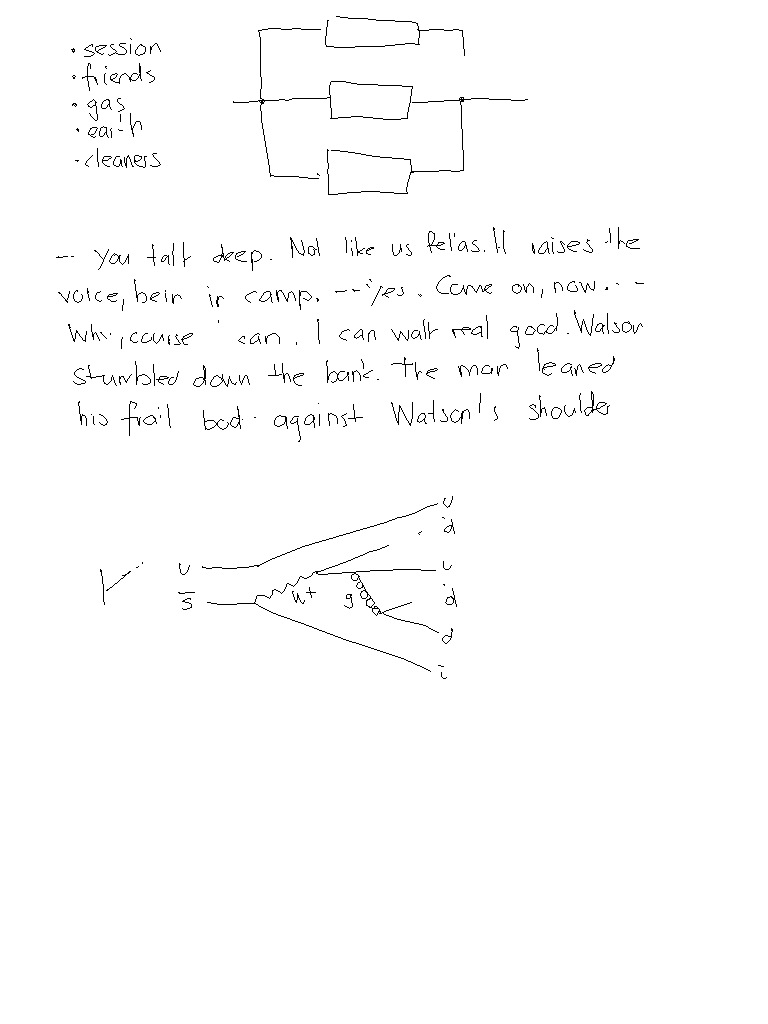 · session
· friends
· gas
· earth
· cleaners
-- You talk deep. Not like us fellas. It raises the
voice, bein in camp. --- Yes. Come on, now. . -
Why, course I can. I can walk real good. Watson
stumbled down the bank. The man leaned
his frail body against Watson's shoulder
u
d
u u
s̅ g d
d